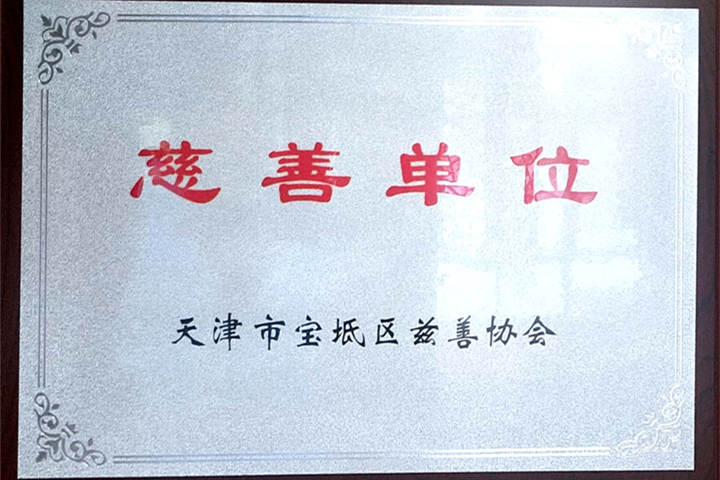 慈善单位
天津市宝坻区兹善协会